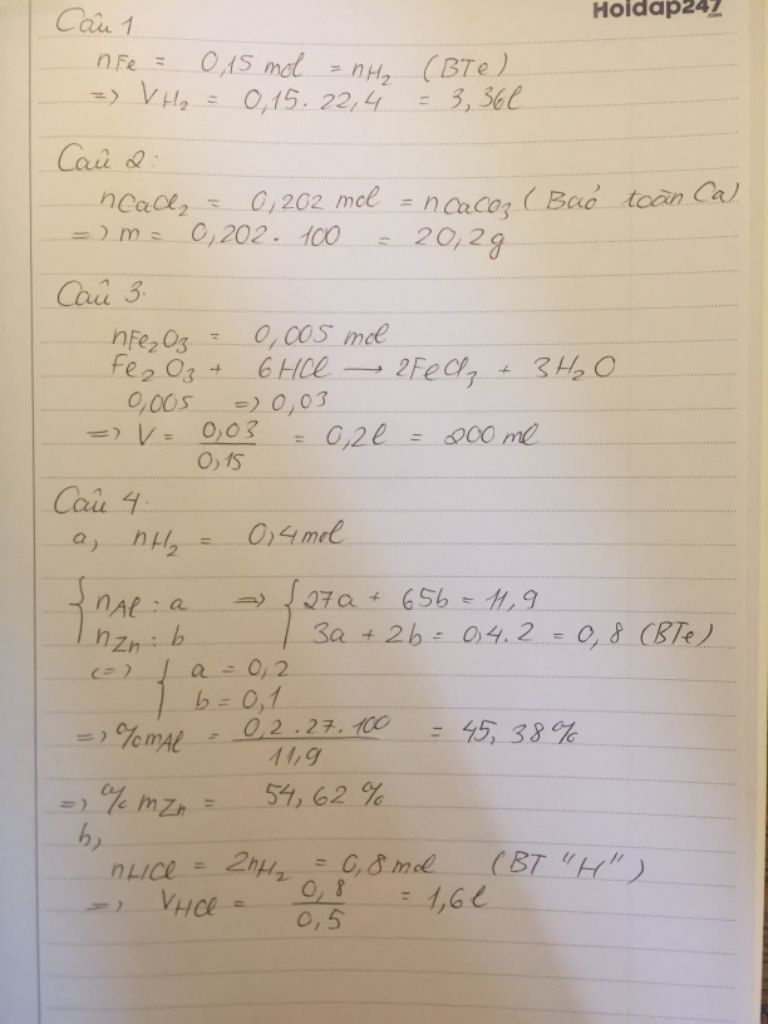 Hoidap247.com
Câu 1
nFe = 0,15 mol = nH₂ (BTe)
=> VH₂ = 0,15. 22,4 = 3,36l
Câu 2:
nCaCl₂ = 0,202 mol = nCaCO₃ (Bảo toàn Ca)
=> m = 0,202. 100 = 20,2g
Câu 3.
nFe₂O₃ = 0,005 mol
Fe₂O₃ + 6HCl → 2FeCl₃ + 3H₂O
0,005 => 0,03
=> V = 0,03/0,15 = 0,2l = 200 ml
Câu 4.
a, nH₂ = 0,4 mol
{ nAl : a => { 27a + 65b = 11,9
nZn : b 3a + 2b = 0,4.2 = 0,8 (BTe)
<=> { a = 0,2
b = 0,1
=> %mAl = 0,2.27.100/11,9 = 45,38%
=> % mZn = 54,62 %
b,
nHCl = 2nH₂ = 0,8 mol (BT "H")
=> VHCl = 0,8/0,5 = 1,6l